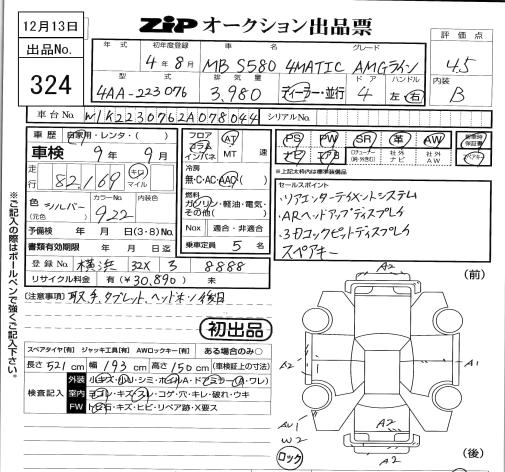 12月13日
ZiP オークション出品票
出品No.
324
年式
初年度登録
4年8月
車名
MB S580 4MATIC AMGライン
グレード
型式
4AA-223076
排気量
3,980
ディーラー・並行
ドア
4
ハンドル
左・右
評価点
4.5
内装
B
車台No.
W1K2230762A078044
シリアルNo.
車歴 自家用・レンタ・( )
車検 9年 9月
走行 82,169 キロ マイル
色 (元色) シルバー
カラーNo. 922
内装色
予備検 年 月 日(3・8)No.
書類有効期限 年 月 日迄
登録No. 横浜 32X 3 8888
リサイクル料金 有(¥30,890) 未
フロア コラム インパネ
AT MT 速
冷房 無・C・AC・AAC
燃料 ガソリン・軽油・電気・その他( )
Nox 適合・非適合
乗車定員 5名
PS PW SR 革 AW
社外ナビ 社外AW
※上記太枠内は標準装備品
セールスポイント
・リアエンターテイメントシステム
・ARヘッドアップディスプレイ
・3Dコックピットディスプレイ
スペアキー
[注意事項] 取説、タブレット、ヘッドホン後日
初出品
スペアタイヤ[有] ジャッキ工具[有] AWロックキー[有] ある場合のみ○
長さ521cm 幅193cm 高さ150cm (車検証上の寸法)
検査記入
外装 小キズ・小U・シミ・ホイルA・ドアミラー(A・ワレ)
室内 ヨゴレ・キズ・スレ・コゲ・穴・キレ・破れ・ウキ
FW トビ石・キズ・ヒビ・リペア跡・X要ス
※ご記入の際はボールペンで強くご記入下さい。
(前)
A2
A2
A1
A2
A2
W2
ロック
(後)